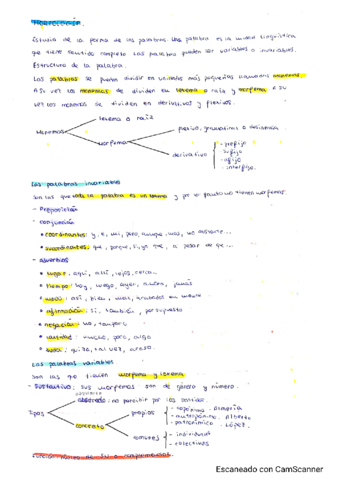 Estudio de la forma de las palabras. Una palabra es la unidad lingüística
que tiene sentido completo. Las palabras pueden ser variables o invariables.
Estructura de la palabra.
Las palabras se pueden dividir en unidades más pequeñas llamadas
A su vez los monemas, se dividen en lexema o raíz y morfema. A su
vez los morfemas se dividen en derivativos y flexivos.
lexema o raíz
Monemas
morfema
flexivo, gramatical o desinencia
derivativo
- prefijo
- sufijo
- interfijo
Las palabras invariables
Son las que toda la palabra es un lexema y por lo tanto no tienen morfemas.
- Preposición
- conjunción
• coordinantes: y, e, ni, pero, aunque, mas, no obstante...
• subordinantes: que, porque, si, ya que, a pesar de que...
- adverbios
• lugar: aquí, allí, lejos, cerca...
• tiempo: hoy, luego, ayer, ahora, jamás
• modo: así, bien, mal, acabados en mente
• afirmación: sí, también, por supuesto
• negación: no, tampoco
• cantidad: mucho, poco, algo
• duda: quizá, tal vez, acaso
Las palabras variables
Son las que tienen morfema y lexema
- Sustantivo: sus morfemas son de género y número.
abstracto: no percibir por los sentidos.
Tipos
concreto
propios
- topónimo: Almería
- antropónimo: Alberto
- patronímico: López
comunes
- individuales
- colectivos
Escaneado con CamScanner